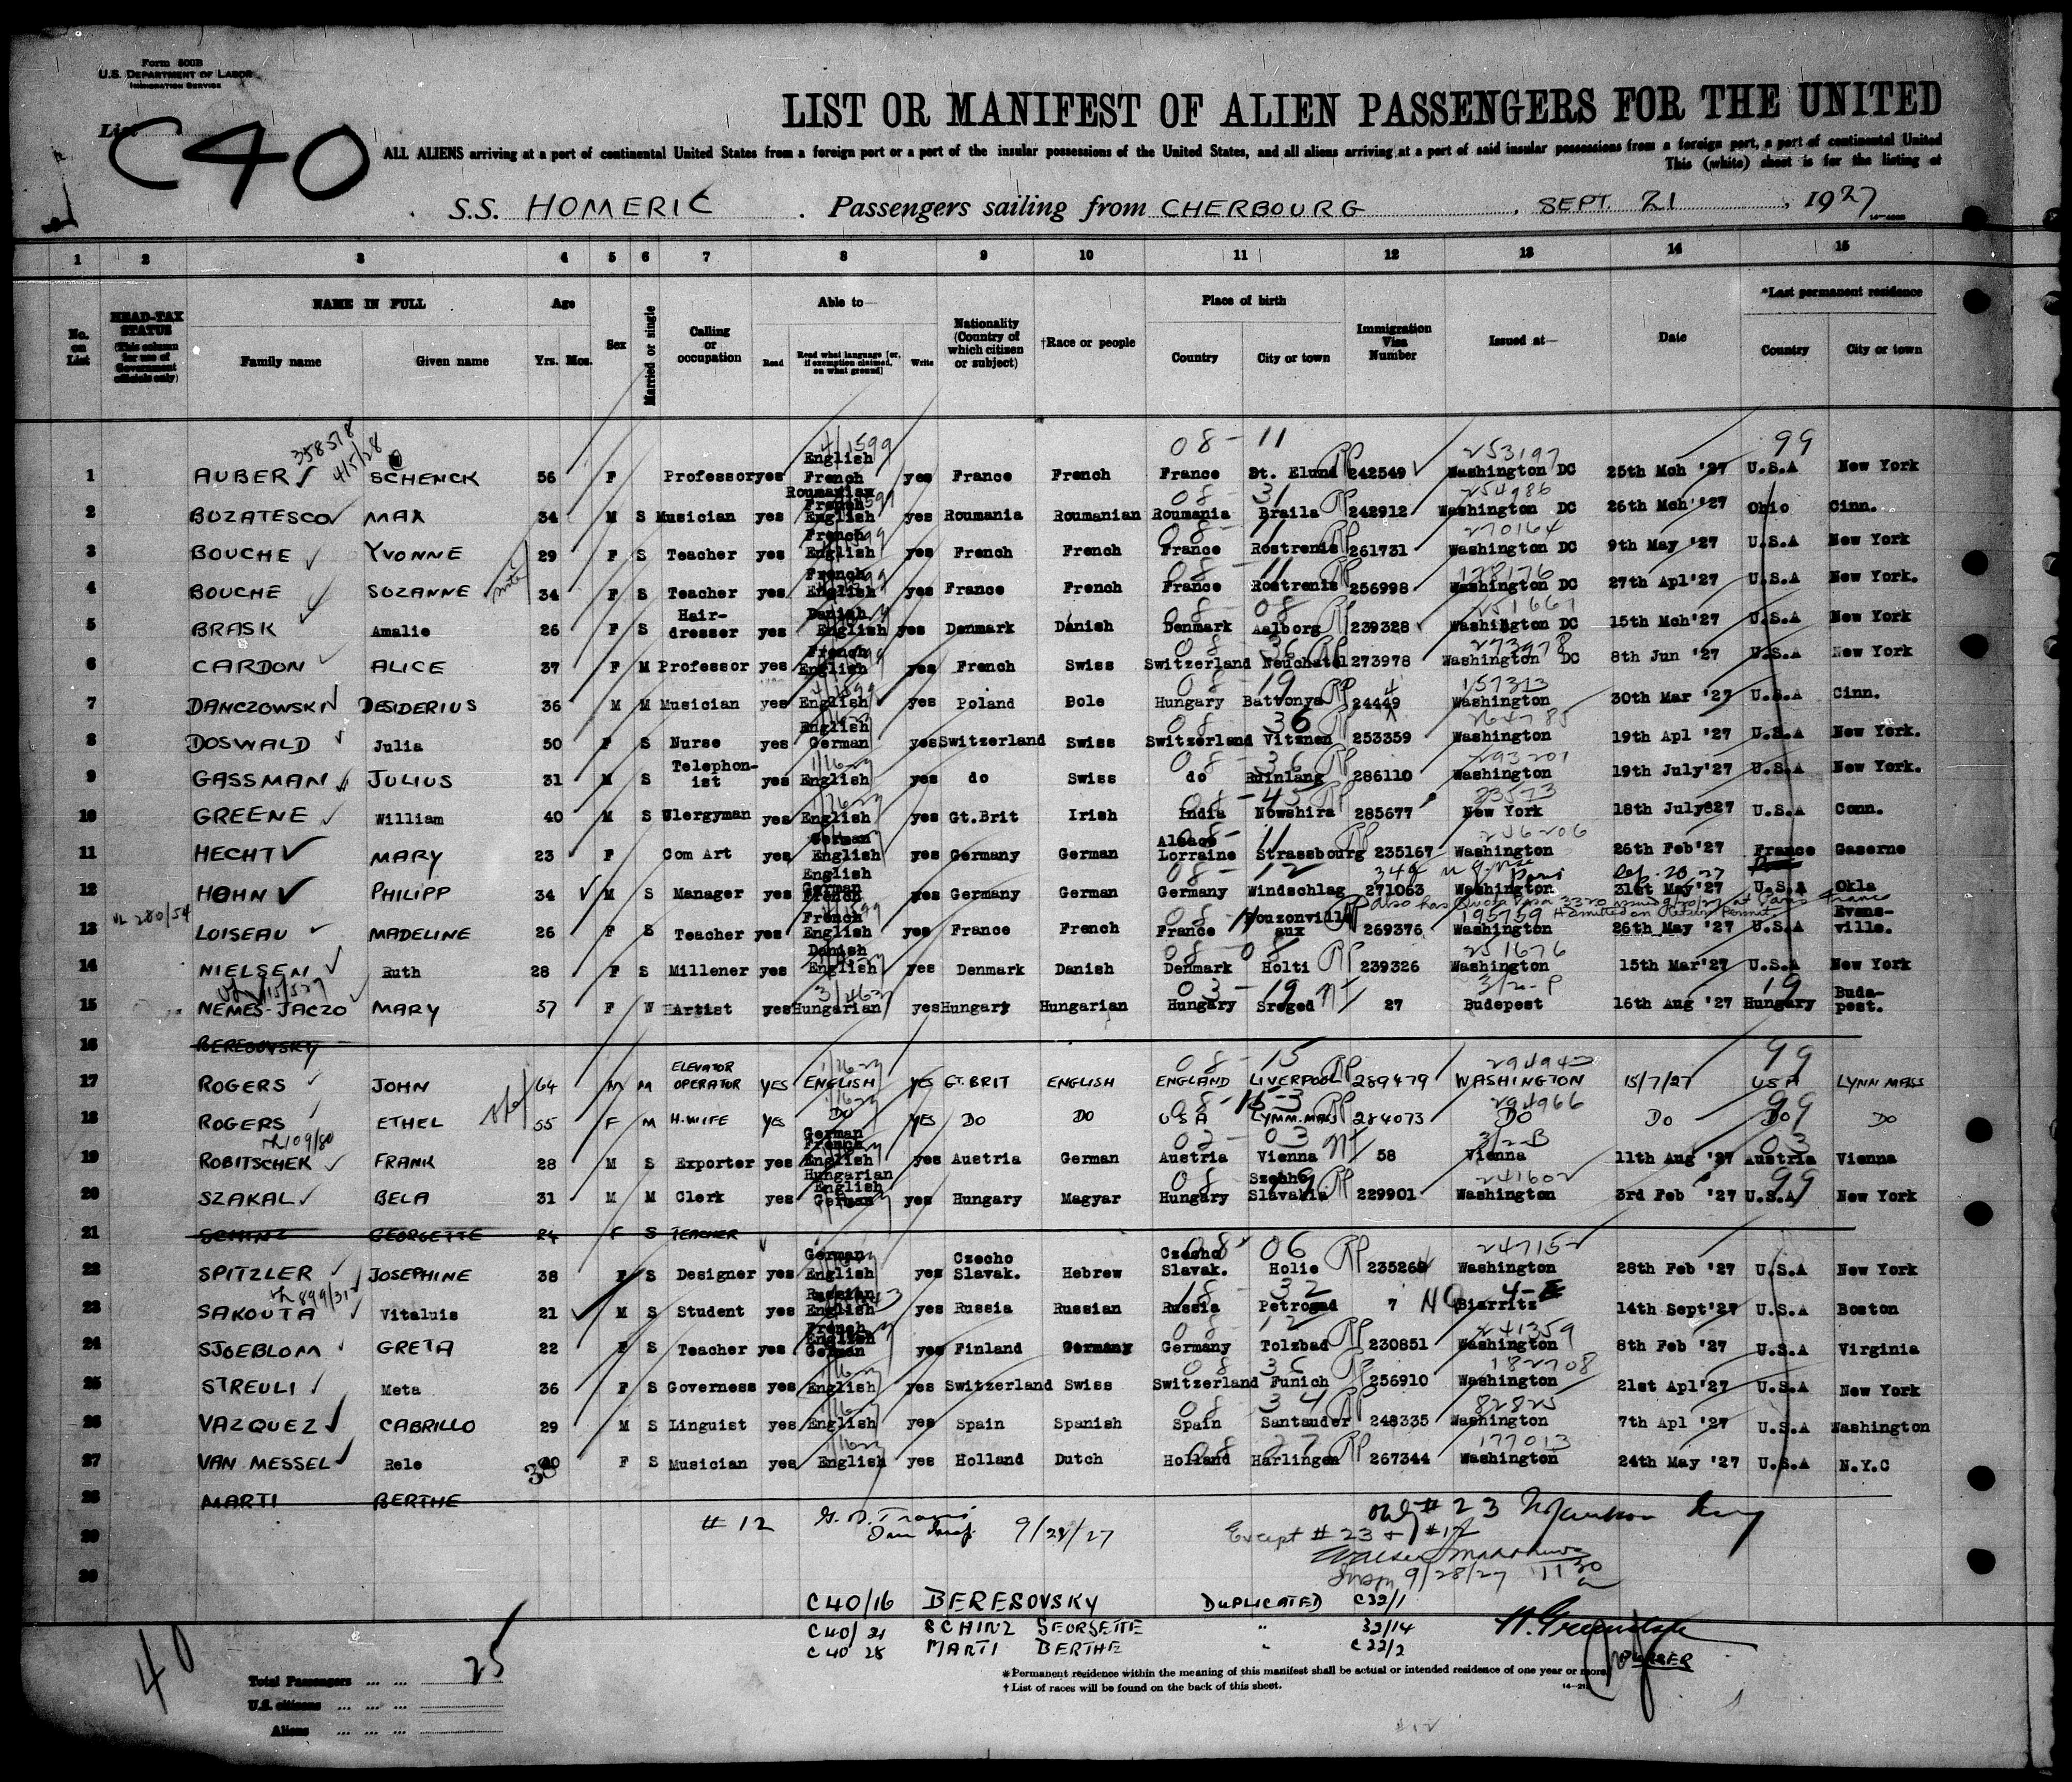 Form 500B
U.S. DEPARTMENT OF LABOR
IMMIGRATION SERVICE
List C40
LIST OR MANIFEST OF ALIEN PASSENGERS FOR THE UNITED
ALL ALIENS arriving at a port of continental United States from a foreign port or a port of the insular possessions of the United States, and all aliens arriving at a port of said insular possessions from a foreign port, a port of continental United
This (white) sheet is for the listing of
S.S. HOMERIC . Passengers sailing from CHERBOURG , SEPT. 21 , 1927
1 2 3 4 5 6 7 8 9 10 11 12 13 14 15
No. on List
HEAD-TAX STATUS (This column for use of Government officials only)
NAME IN FULL
Family name Given name
Age
Yrs. Mos.
Sex
Married or single
Calling or occupation
Able to—
Read Read what language [or, if exemption claimed, on what ground] Write
Nationality (Country of which citizen or subject)
†Race or people
Place of birth
Country City or town
Immigration Visa Number
Issued at—
Date
*Last permanent residence
Country City or town
358578 4/5/28 4/1599 08-11 253197 99
1 AUBER SCHENCK 56 F Professor yes English French yes France French France St. Elund RP 242549 Washington DC 25th Mch '27 U.S.A New York
08-31 254986
2 BUZATESCO MAX 34 M S Musician yes Roumanian French English yes Roumania Roumanian Roumania Braila RP 242912 Washington DC 26th Mch '27 Ohio Cinn.
08-11 270164
3 BOUCHE YVONNE 29 F S Teacher yes French English yes French French France Rostrenis RP 261731 Washington DC 9th May '27 U.S.A New York
08-11 128176
4 BOUCHE SUZANNE 34 F S Teacher yes French English yes France French France Rostrenis RP 256998 Washington DC 27th Apl'27 U.S.A New York.
08-08 251661
5 BRASK Amalie 26 F S Hair-dresser yes Danish English yes Denmark Danish Denmark Aalborg RP 239328 Washington DC 15th Mch'27 U.S.A New York
08-36 273978
6 CARDON ALICE 37 F M Professor yes French English yes French Swiss Switzerland Neuchatel 273978 Washington DC 8th Jun '27 U.S.A New York
08-19 157313
7 DANCZOWSKI DESIDERIUS 36 M M Musician yes English yes Poland Bole Hungary Battonya RP 24449 Washington 30th Mar '27 U.S.A Cinn.
08-36 264785
8 DOSWALD Julia 50 F S Nurse yes English German yes Switzerland Swiss Switzerland Vitznen 253359 Washington 19th Apl '27 U.S.A New York.
08-36 293201
9 GASSMAN JULIUS 31 M S Telephon-ist yes English yes do Swiss do Ruinlang 286110 Washington 19th July'27 U.S.A New York.
08-45 83573
10 GREENE William 40 M S Wlergyman yes English yes Gt.Brit Irish India Nowshira 285677 New York 18th July827 U.S.A Conn.
08-11 256206
11 HECHT MARY 23 F Com Art yes German English yes Germany German Alsace Lorraine Strassbourg 235167 Washington 26th Feb'27 France Gaserne
08-12 Paris Sep. 20-27
12 HOHN PHILIPP 34 M S Manager yes English German French yes Germany German Germany Windschlag 271063 Washington 31st May'27 U.S.A Okla
also has Quota Visa 3320 issued 9/20/27 at Paris France
Admitted on Return Permit
280/54 08-11 195759
13 LOISEAU MADELINE 26 F S Teacher yes French English yes France French France Nouzonville aux 269376 Washington 26th May '27 U.S.A Evans-ville.
08-08 251676
14 NIELSEN Ruth 28 F S Millener yes Danish English yes Denmark Danish Denmark Holti RP 239326 Washington 15th Mar'27 U.S.A New York
03-19 3/2-P 19
15 NEMES-JACZO MARY 57 F W Artist yes Hungarian yes Hungary Hungarian Hungary Sreged 27 Budepest 16th Aug '27 Hungary Buda-pest.
16 BERESOVSKY
08-15 294942 99
17 ROGERS JOHN 64 M M ELEVATOR OPERATOR YES ENGLISH YES GT. BRIT ENGLISH ENGLAND LIVERPOOL RP 289479 WASHINGTON 15/7/27 USA LYNN MASS
294966 99
18 ROGERS ETHEL 55 F M H.WIFE YES DO YES DO DO USA LYNN. MASS 284073 DO DO DO DO
109/80 02-03 3/2-B 03
19 ROBITSCHEK FRANK 28 M S Exporter yes German French English yes Austria German Austria Vienna 58 Vienna 11th Aug '27 Austria Vienna
08-19 241602 99
20 SZAKAL BELA 31 M M Clerk yes Hungarian English German yes Hungary Magyar Hungary Szecho Slavakia RP 229901 Washington 3rd Feb '27 U.S.A New York
21 SCHINZ GEORGETTE 24 F S TEACHER
08 06 247152
22 SPITZLER JOSEPHINE 38 F S Designer yes German English yes Czecho Slavak. Hebrew Czecho Slavak. Holic RP 235260 Washington 28th Feb '27 U.S.A New York
899/31 18-32 4-E
23 SAKOUTA Vitaluis 21 M S Student yes Russian English yes Russia Russian Russia Petrograd 7 NQ Biarritz 14th Sept'27 U.S.A Boston
08-12 241359
24 SJOEBLOM GRETA 22 F S Teacher yes French English German yes Finland Germany Germany Tolzbad RP 230851 Washington 8th Feb '27 U.S.A Virginia
08 36 182708
25 STREULI Meta 36 F S Governess yes English yes Switzerland Swiss Switzerland Funich RP 256910 Washington 21st Apl'27 U.S.A New York
08 34 82825
26 VAZQUEZ CABRILLO 29 M S Linguist yes English yes Spain Spanish Spain Santauder RP 248335 Washington 7th Apl '27 U.S.A Washington
08 27 177013
27 VAN MESSEL Rele 30 F S Musician yes English yes Holland Dutch Holland Harlingen RP 267344 Washington 24th May '27 U.S.A N.Y.C
28 MARTI BERTHE
29
30
#12 9/28/27
Only #23
Except #23 + #12
Insp 9/28/27 11 30
C40/16 BERESOVSKY DUPLICATED C32/1
C40/21 SCHINZ GEORGETTE " 32/14
C40 28 MARTI BERTHE " C32/2
PURSER
40
Total Passengers ... ... 25
U.S. citizens ... ... ...
Aliens ... ... ...
*Permanent residence within the meaning of this manifest shall be actual or intended residence of one year or more.
†List of races will be found on the back of this sheet.